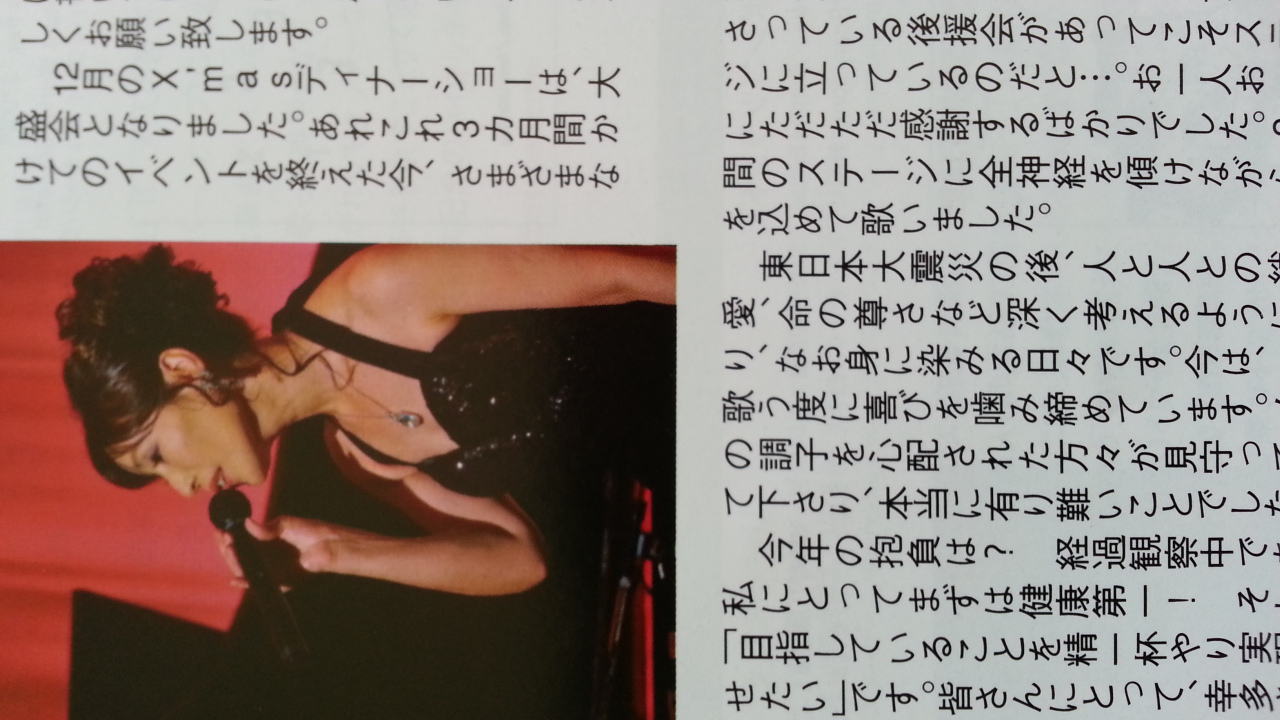 しくお願い致します。
12月のX'masディナーショーは、大
盛会となりました。あれこれ3カ月間か
けてのイベントを終えた今、さまざまな
さっている後援会があってこそス
ジに立っているのだと…。お一人お
にただただ感謝するばかりでした。
間のステージに全神経を傾けながら
を込めて歌いました。
東日本大震災の後、人と人との絆
愛、命の尊さなど深く考えるように
り、なお身に染みる日々です。今は、
歌う度に喜びを噛み締めています。
の調子を心配された方々が見守って
て下さり、本当に有り難いことでした
今年の抱負は？　経過観察中で
私にとってまずは健康第一！　そ
「目指していることを精一杯やり実
せたい」です。皆さんにとって、幸多